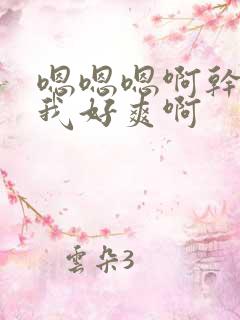 嗯嗯嗯啊幹
我好爽啊
雲朵3